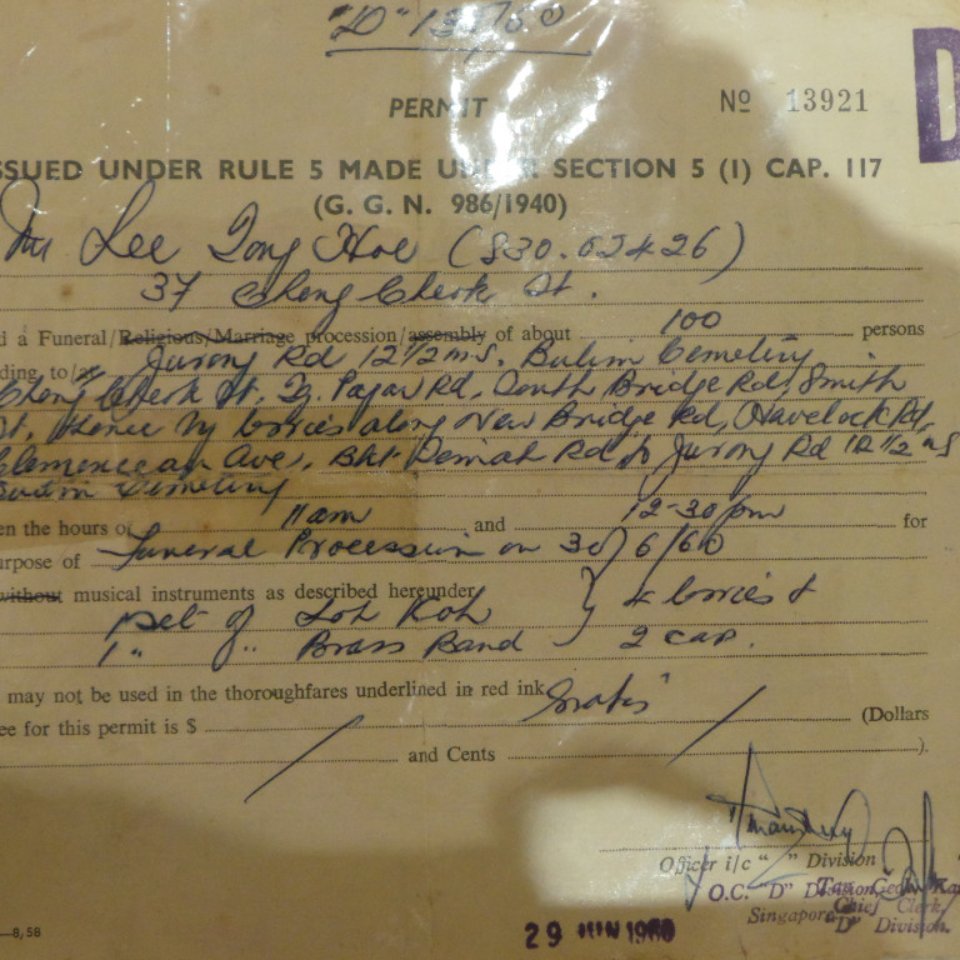 "D"
D
PERMIT Nº 13921
SSUED UNDER RULE 5 MADE UNDER SECTION 5 (1) CAP. 117
(G. G. N. 986/1940)
Mr Lee Tong Hoe (S30.02426)
37 Cheng Cheok St.
d a Funeral/Religious/Marriage procession/assembly of about 100 persons
ding, to/at Jurong Rd 12½ ms. Bulim Cemetery
Cheng Cheok St, Tg. Pagar Rd, South Bridge Rd, Smith
St, thence by lorries along New Bridge Rd, Havelock Rd,
Clemenceau Ave, Bkt Timah Rd to Jurong Rd 12½ ms
Bulim Cemetery
en the hours of 11 am and 12-30 pm for
urpose of Funeral Procession on 30/6/60
without musical instruments as described hereunder
1 set of Loh Koh } 4 lorries &
1 " " Brass Band 2 cars.
may not be used in the thoroughfares underlined in red ink
ee for this permit is $ Gratis (Dollars
and Cents ).
Officer i/c " " Division
O.C. "D" Division,
Singapore
Chief Clerk
"D" Division.
—8,58
29 JUN 1960